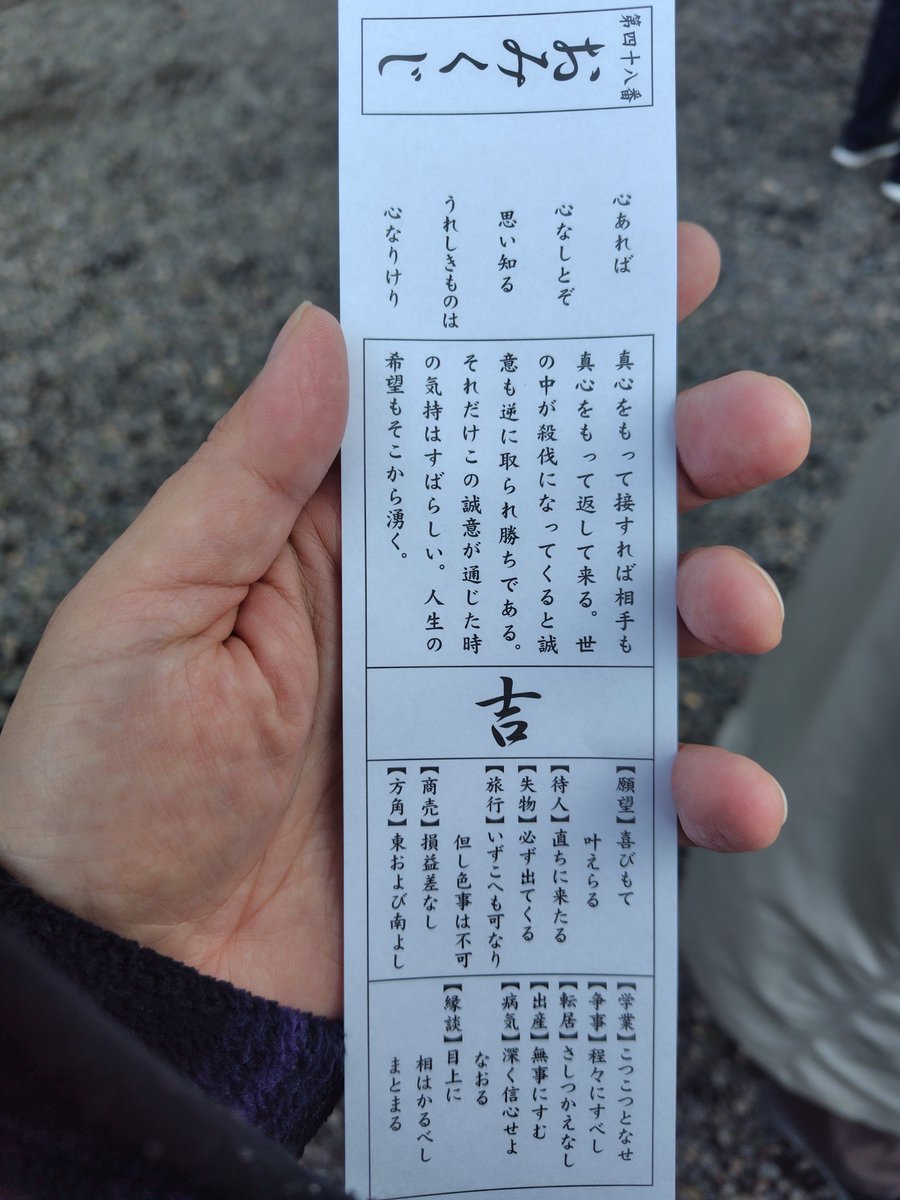 第四十八番
おみくじ
心あれば
心なしとぞ
思い知る
うれしきものは
心なりけり
真心をもって接すれば相手も
真心をもって返して来る。世
の中が殺伐になってくると誠
意も逆に取られ勝ちである。
それだけこの誠意が通じた時
の気持はすばらしい。人生の
希望もそこから湧く。
吉
【願望】喜びもて
叶えらる
【待人】直ちに来たる
【失物】必ず出てくる
【旅行】いずこへも可なり
但し色事は不可
【商売】損益差なし
【方角】東および南よし
【学業】こつこつとなせ
【争事】程々にすべし
【転居】さしつかえなし
【出産】無事にすむ
【病気】深く信心せよ
なおる
【縁談】目上に
相はかるべし
まとまる